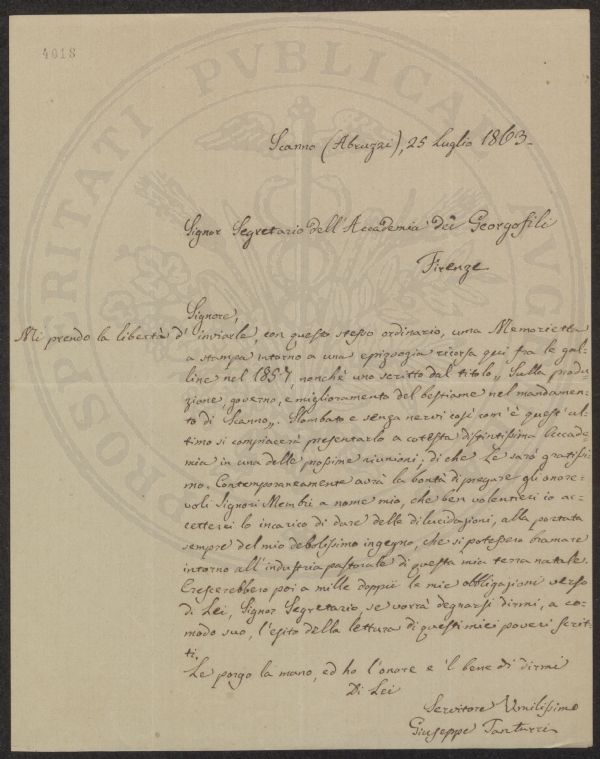 4018
PROSPERITATI PVBLICAE AVGENDAE
Scanno (Abruzzi), 25 Luglio 1863.
Signor Segretario dell'Accademia dei Georgofili
Firenze
Signore,
Mi prendo la libertà d'inviarle, con questo stesso ordinario, una Memorietta
a stampa intorno a una epizoogia ricorsa qui fra le gal-
line nel 1857, nonchè uno scritto dal titolo „ Sulla produ-
zione, governo, e miglioramento del bestiame nel mandamen-
to di Scanno„. Slombato e senza nervi così com'è quest'ul-
timo si compiacerà presentarlo a cotesta distintissima Accade-
mia in una delle prossime riunioni, di che Le sarò gratissi-
mo. Contemporaneamente avrà la bontà di pregare gli onore-
voli Signori Membri a nome mio, che ben volentieri io ac-
cetterei lo incarico di dare delle dilucidazioni, alla portata
sempre del mio debolissimo ingegno, che si potessero bramare
intorno all'industria pastorale di questa mia terra natale.
Crescerebbero poi a mille doppii le mie obbligazioni verso
di Lei, Signor Segretario, se vorrà degnarsi dirmi, a co-
modo suo, l'esito della lettura di questi miei poveri scrit-
ti.
Le porgo la mano, ed ho l'onore e 'l bene di dirmi
Di Lei
Servitore Umilissimo
Giuseppe Tanturri